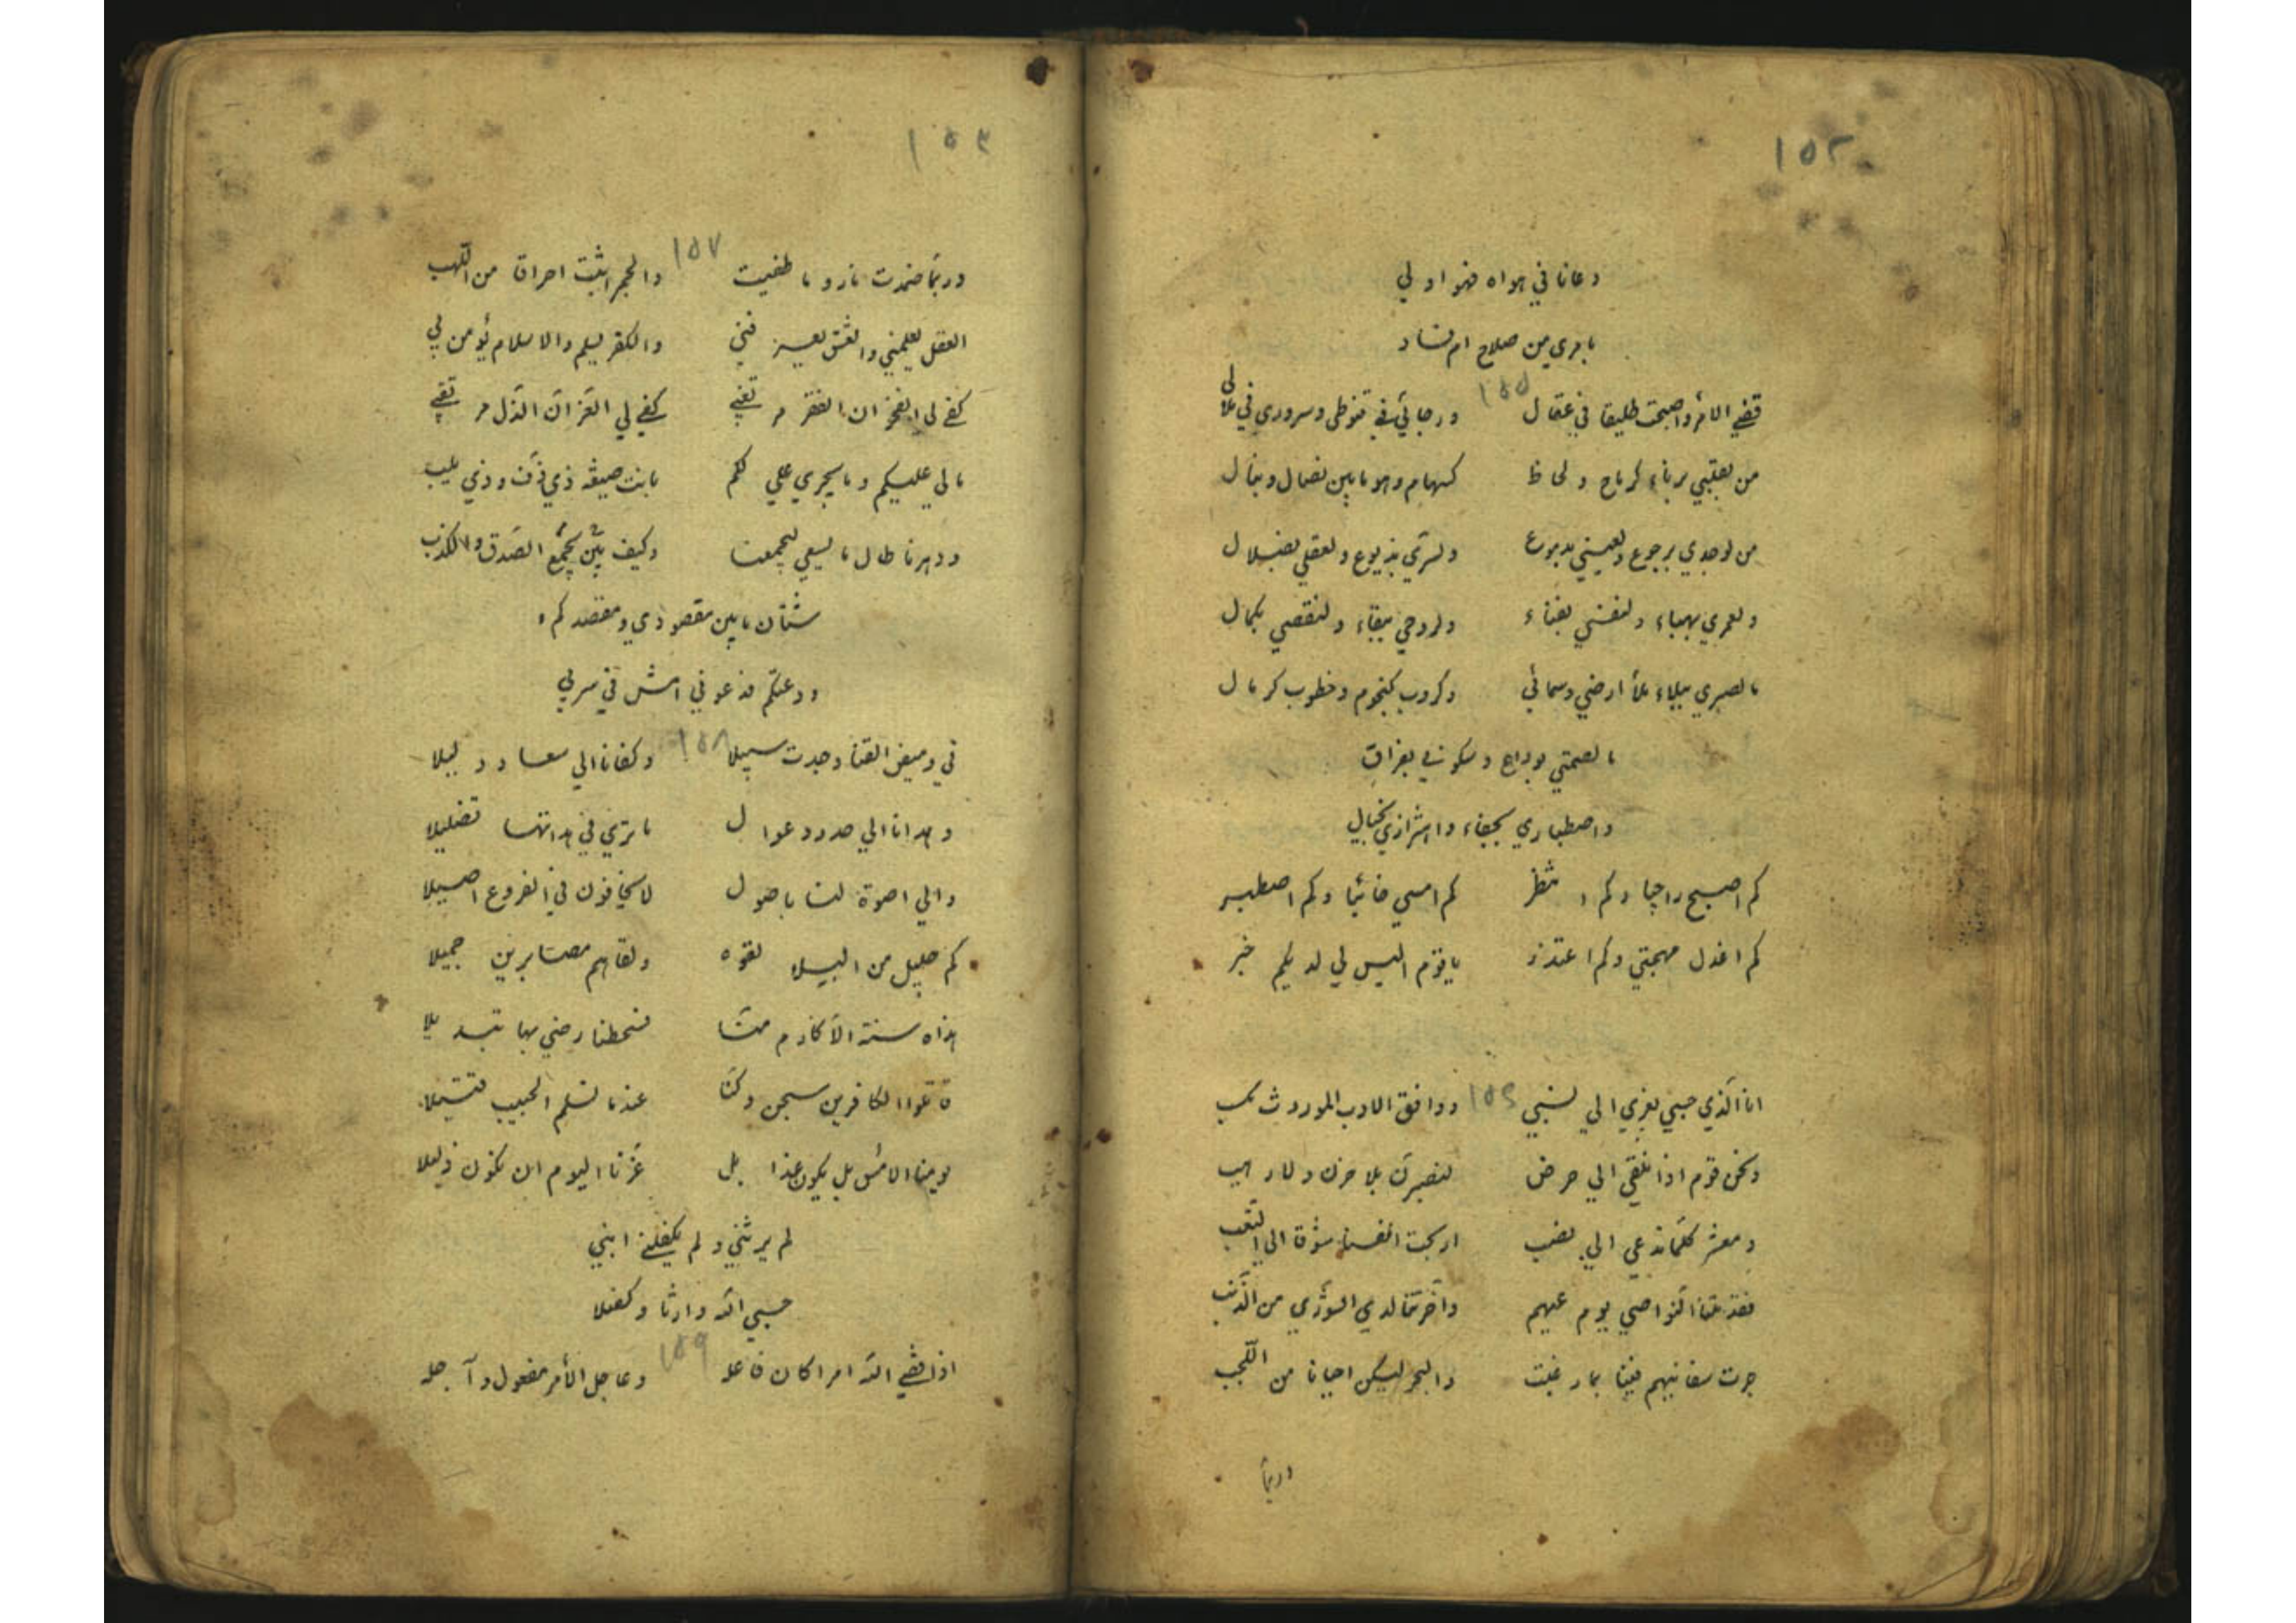 ١٥٢
دعانا في هواه فهو اولي
يا مري من صلاح ام فساد
قضي الامر واصبحت طليقا في عقال ١٥٥ ورجائي في قنوطى وسروري في ملالى
من بقلبي برناء كرماح ولحاظ كسهام وهو ما بين نصال ونبال
من لوجدي برجوع ولعيني بدموع ولسري بذيوع ولعقلي بضلال
ولعمري بهباء ولنفسي بفناء ولروحي ببقاء ولنقصي بكمال
ما لصبري ببلاء ملأ ارضي وسمائي وكروب كنجوم وخطوب كرمال
ما لصمتي بواح وسكوني بفراق
واصطباري بجفاء واهتزازي بخيال
كم اصبح راجيا وكم انتظر كم امسي خائبا وكم اصطبر
كم اعذل مهجتي وكم اعتذر يا قوم اليس لي لديكم خبر
انا الذي حبي يعزي الي نسبي ١٥٦ ووافق الادب الموروث مكتسب
ونحن قوم اذا نلقي الي حرض لنصبرن بلا حزن ولا رهب
ومعشر كلما ندعي الي نصب اركبت انفسنا شوقا الي التعب
فقد ملكنا النواصي يوم عيهم واخرتنا لدي الشوري من الذنب
جرت سفائنهم فينا بما رغبت والبحر ليسكن احيانا من اللجب
وربما
١٥٣
وربما ضمدت نار وما طفيت ١٥٧ والجمر اثبت احراق من اللهب
العقل يعلمني والعشق يعرفني والكفر يسلم والاسلام يؤمن بي
كفي لى الفخر ان الفقر مرتقي كفي لي العز ان الذل مرتقي
ما لي عليكم وما يجري علي لكم
ودهرنا طال ما يسعي ليجمعنا وكيف يجمع بين الصدق والكذب
شتان ما بين مقصودي ومقصدكم
ودعتكم فدعوني امش في سربي
في وميض القنا وجدت سبيلا ١٥٨ وكفانا الي سعاد دليلا
وهدانا الي صدور عوال ما تري في هداتها تضليلا
والي اصوة لنا باصول لا يخافون في الفروع اصيلا
كم جليل من البلا لقوه ولقاهم مصابرين جميلا
هذه سنة الاكارم منا فسخطنا رضي بها تبديلا
قاتلوا الكافرين سجن وكنا عندما نسلم الحبيب قتيلا
يومنا الامس بل يكون غدا بل عزنا اليوم ان نكون ذليلا
لم يرثني ولم يكفلني ابني
حسبي الله وارثا وكفيلا
اذا قضي الله امرا كان فاعله ١٥٩ وعاجل الأمر مفعول وآجله